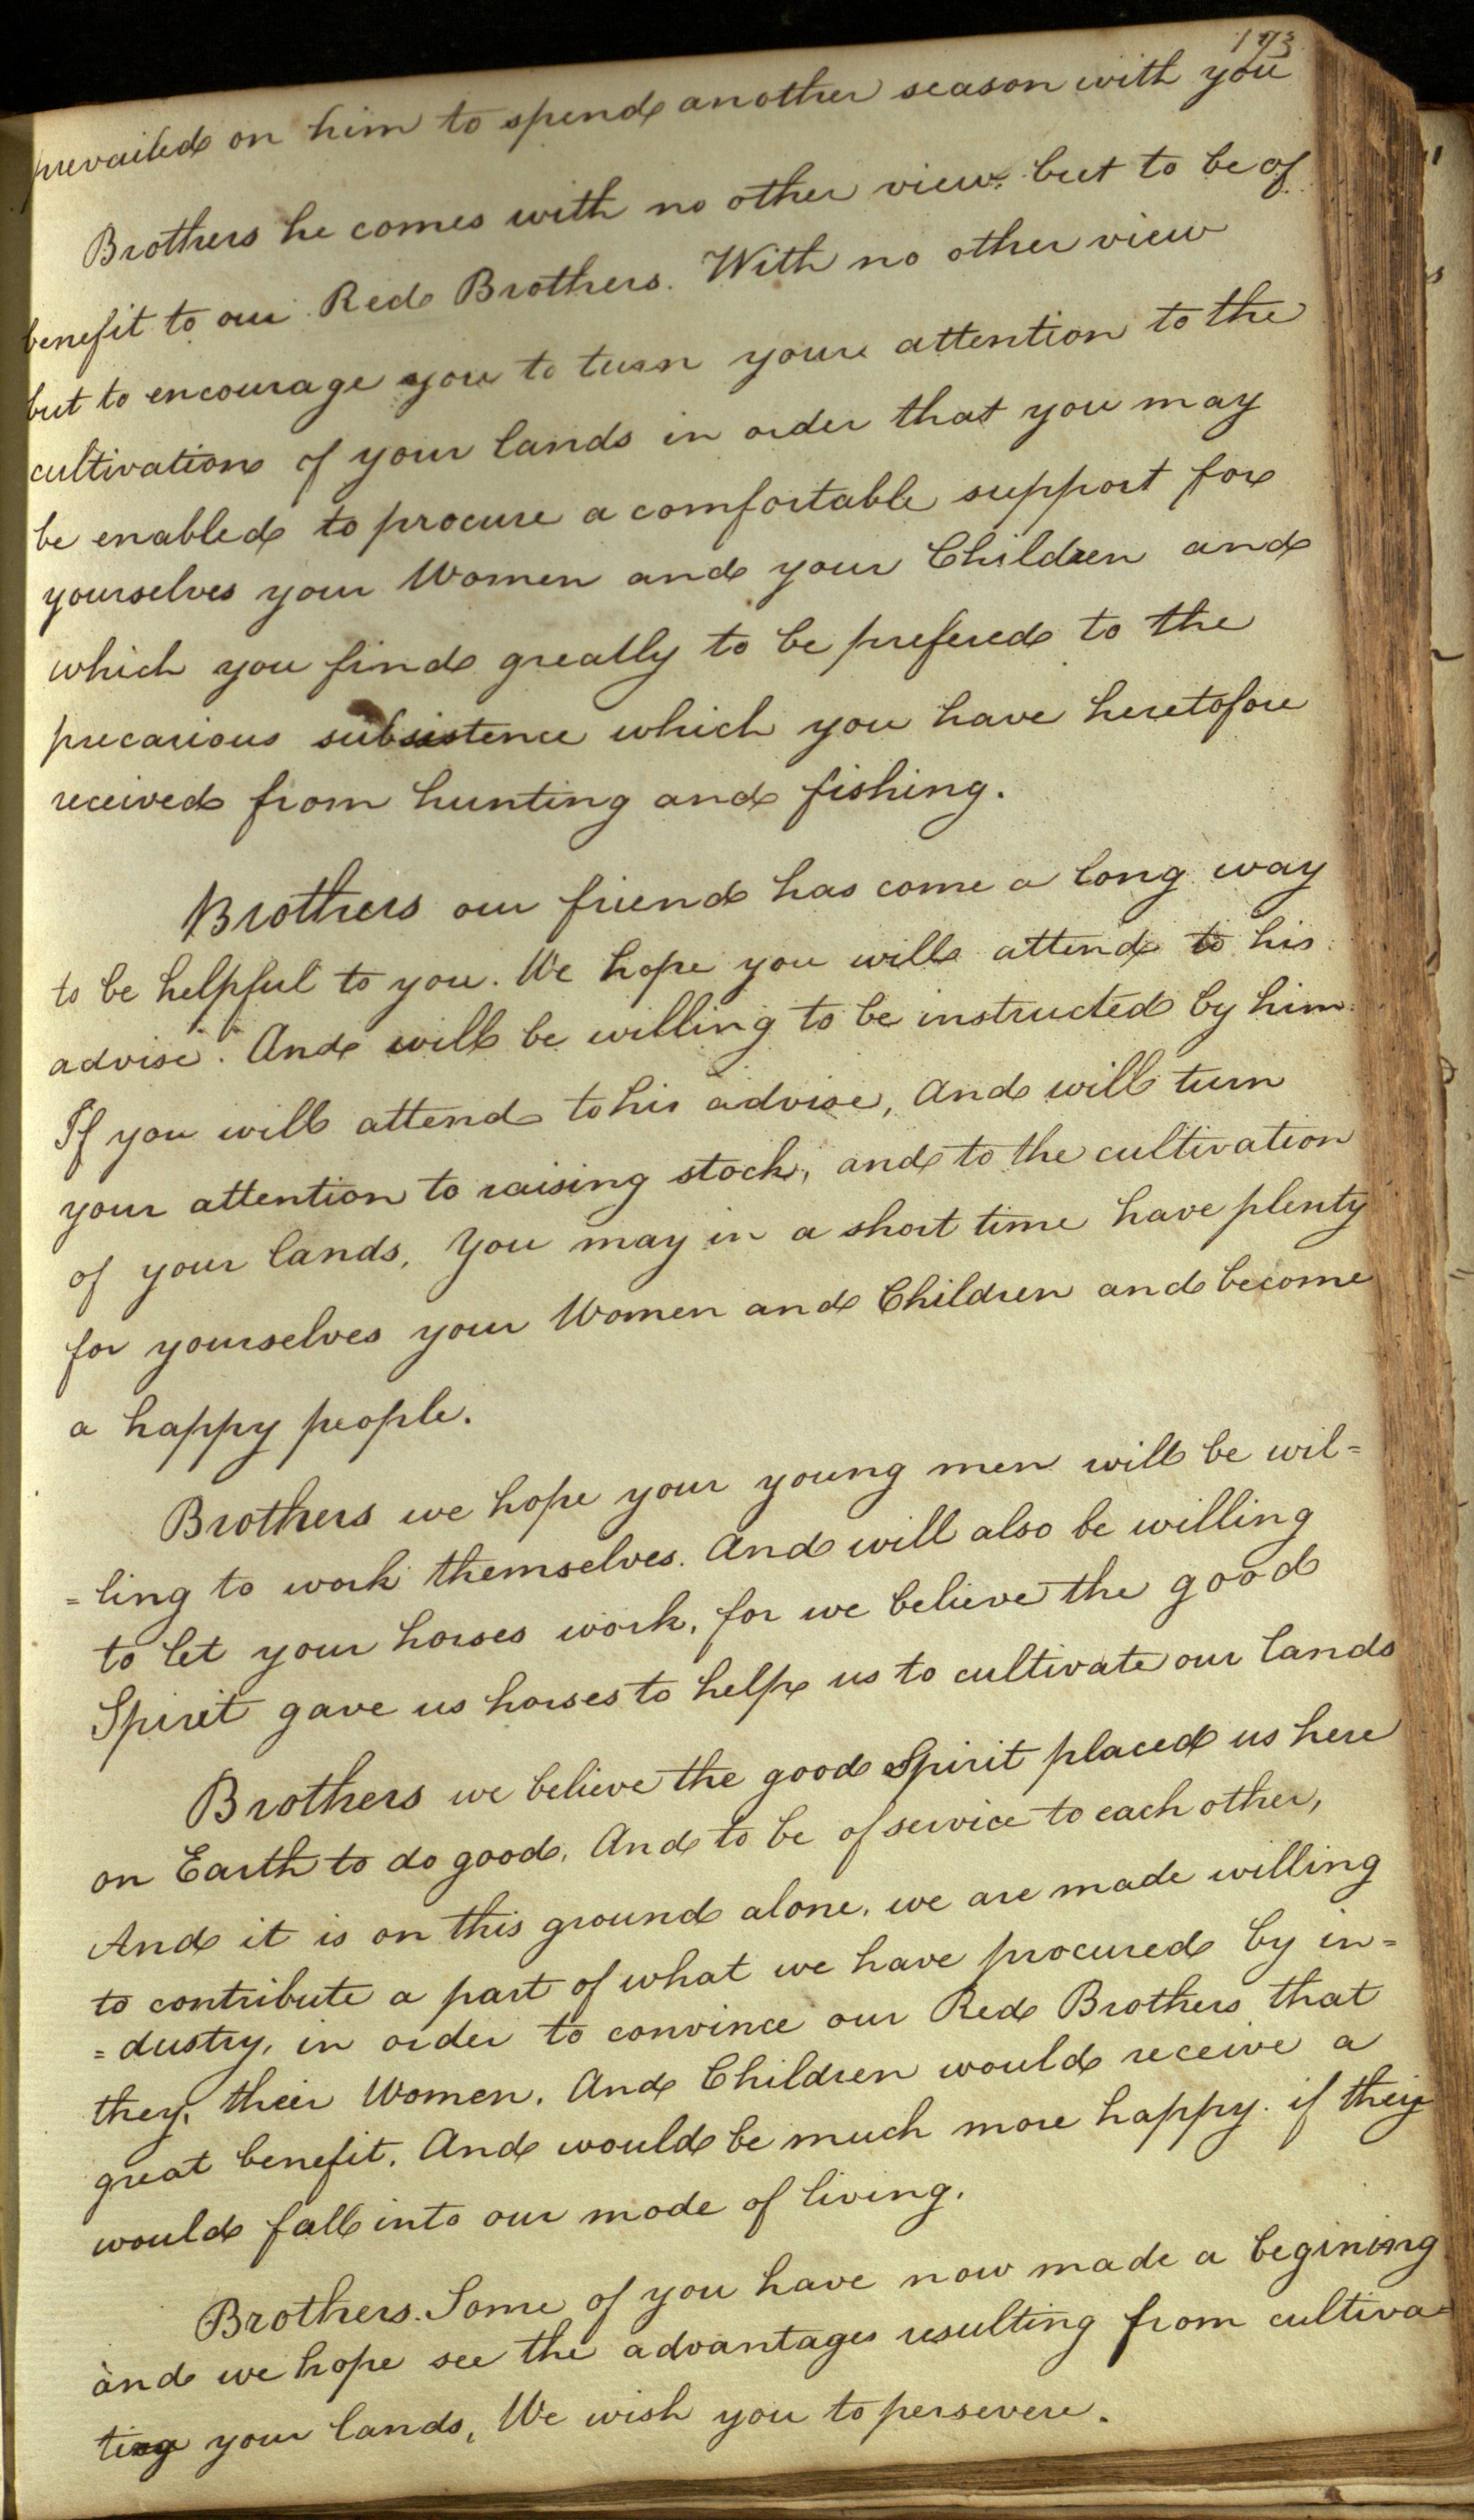 173
prevailed on him to spend another season with you
Brothers he comes with no other view but to be of
benefit to our Red Brothers. With no other view
but to encourage you to turn your attention to the
cultivation of your lands in order that you may
be enabled to procure a comfortable support for
yourselves your Women and your Children and
which you find greatly to be prefered to the
precarious subsistence which you have heretofore
received from hunting and fishing.
Brothers our friend has come a long way
to be helpful to you. We hope you will attend to his
advise. And will be willing to be instructed by him.
If you will attend to his advise, And will turn
your attention to raising stock, and to the cultivation
of your lands, You may in a short time have plenty
for yourselves your Women and Children and become
a happy people.
Brothers we hope your young men will be wil=
=ling to work themselves. And will also be willing
to let your horses work, for we believe the good
Spirit gave us horses to help us to cultivate our lands
Brothers we believe the good Spirit placed us here
on Earth to do good, And to be of service to each other,
And it is on this ground alone, we are made willing
to contribute a part of what we have procured by in=
=dustry, in order to convince our Red Brothers that
they, their Women, And Children would receive a
great benefit, And would be much more happy if they
would fall into our mode of living.
Brothers. Some of you have now made a begining
and we hope see the advantages resulting from cultiva=
ting your lands, We wish you to persevere.